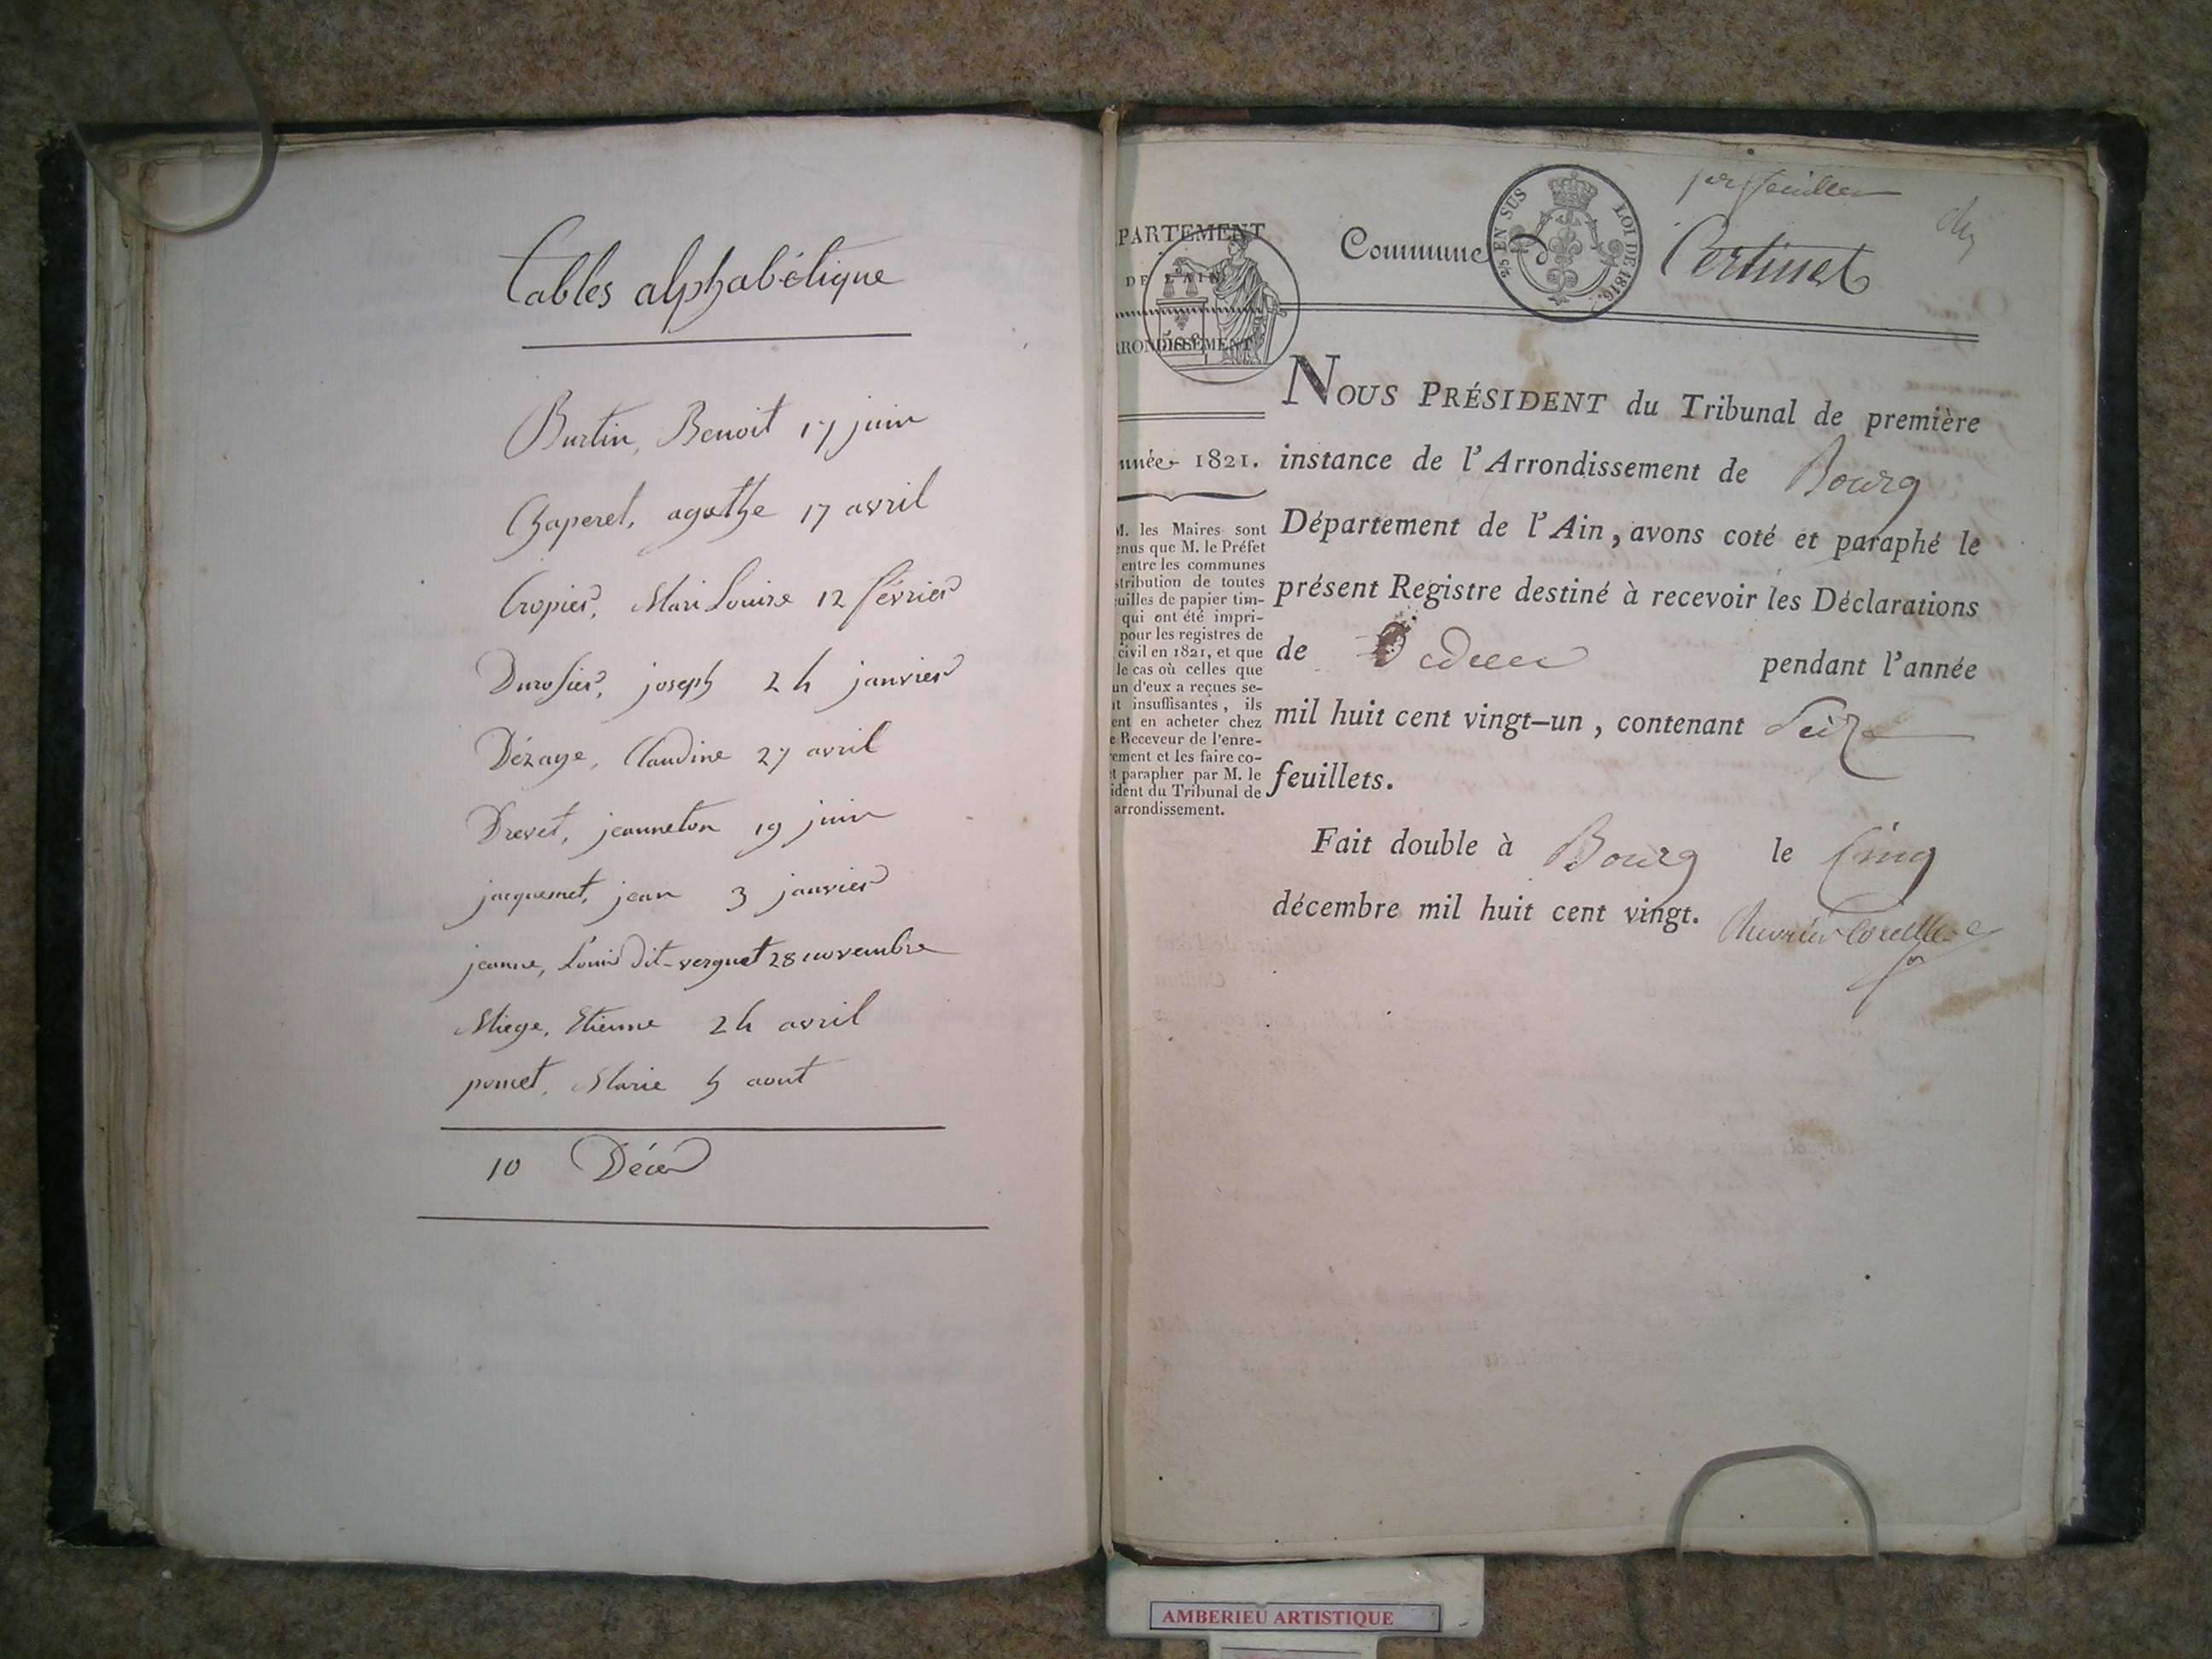 Tables alphabétique
Burtin, Benoit 17 juin
Chaperel, agathe 17 avril
Cropier, Mari Louise 12 février
Durosier, joseph 24 janvier
Dézaye, Claudine 27 avril
Drevet, jeanneton 19 juin
jacquemet, jean 3 janvier
jeanne, Louis dit-verguet 28 novembre
Miege, Etienne 24 avril
poncet, Marie 4 aout
10 Décès
PARTEMENT
DE L'AIN
RRONDISSEMENT
nnée 1821.
M. les Maires sont
enus que M. le Préfet
entre les communes
stribution de toutes
uilles de papier tim-
qui ont été impri-
pour les registres de
civil en 1821, et que
le cas où celles que
un d'eux a reçues se-
nt insuffisantes, ils
ent en acheter chez
e Receveur de l'enre-
ement et les faire co-
et parapher par M. le
ident du Tribunal de
arrondissement.
1er feuillet
Commune De Certines
25 EN SUS LOI DE 1816.
NOUS PRÉSIDENT du Tribunal de première
instance de l'Arrondissement de Bourg
Département de l'Ain, avons coté et paraphé le
présent Registre destiné à recevoir les Déclarations
de Décès pendant l'année
mil huit cent vingt-un, contenant Seize
feuillets.
Fait double à Bourg le Cinq
décembre mil huit cent vingt.
AMBERIEU ARTISTIQUE